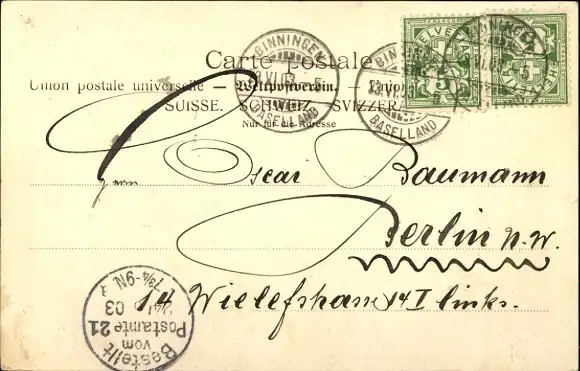 Carte postale
Union postale universelle — Weltpostverein. —
SUISSE. SCHWEIZ. SVIZZERA
Nur für die Adresse
Herrn Oscar Baumann
Berlin N.W.
14 Wielefstrasse 14 I links.
BINNINGEN
BASELLAND
BASELLAND
HELVETIA
5
Bestellt
vom
Postamte 21
03
7¾-9N